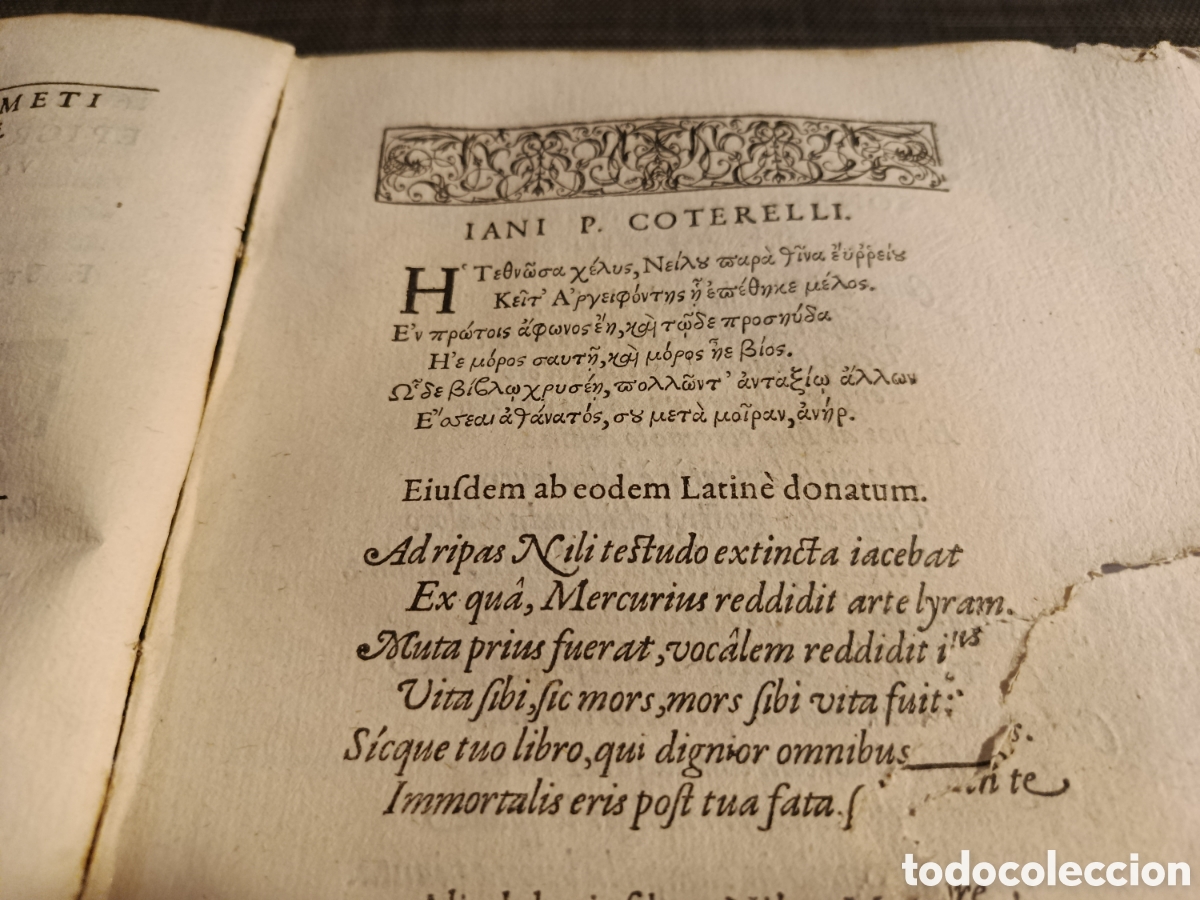 METI
IANI P. COTERELLI.
Ἡ Τεθνῶσα χέλυς, Νείλου παρὰ θῖνα ἐϋῤῥείου
Κεῖτ' Ἀργειφόντης ᾗ ἐπέθηκε μέλος.
Ἐν πρώτοις ἄφωνος ἔη, καὶ τῷδε προσηύδα
Ἠὲ μόρος σαυτῇ, καὶ μόρος ἠὲ βίος.
Ὧδε βίβλῳ χρυσέῃ, πολλῶντ' ἀνταξίῳ ἄλλων
Ἔσσεαι ἀθάνατός, συ μετὰ μοῖραν, ἀνήρ.
Eiuſdem ab eodem Latinè donatum.
Ad ripas Nili teſtudo extincta iacebat
Ex quâ, Mercurius reddidit arte lyram.
Muta prius fuerat, vocâlem reddidit
Vita ſibi, ſic mors, mors ſibi vita fuit:
Sícque tuo libro, qui dignior omnibus
Immortalis eris poſt tua fata
todocoleccion